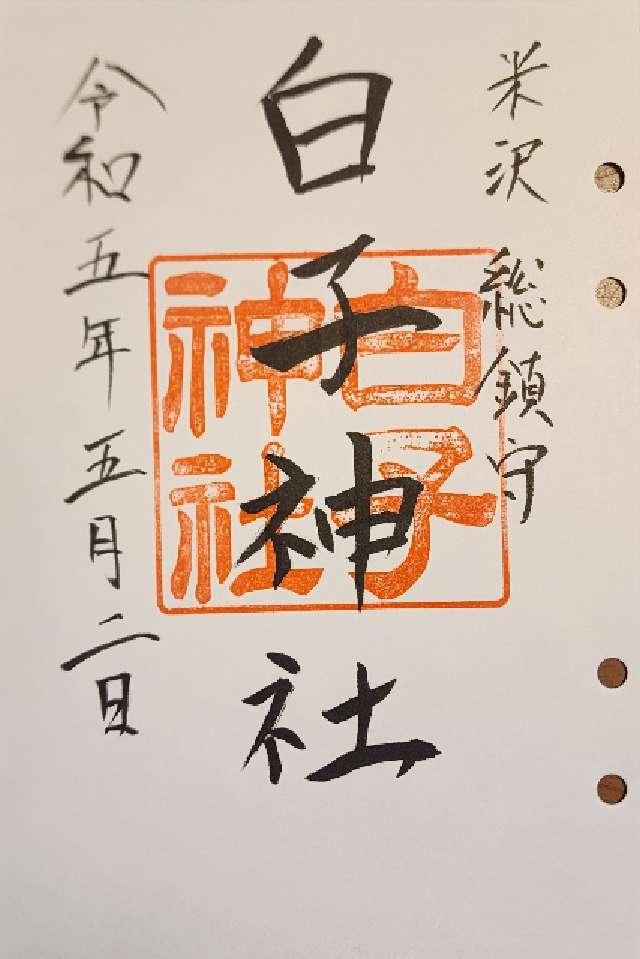 米沢 総鎮守
白子神社
白子
神社
令和五年五月二日